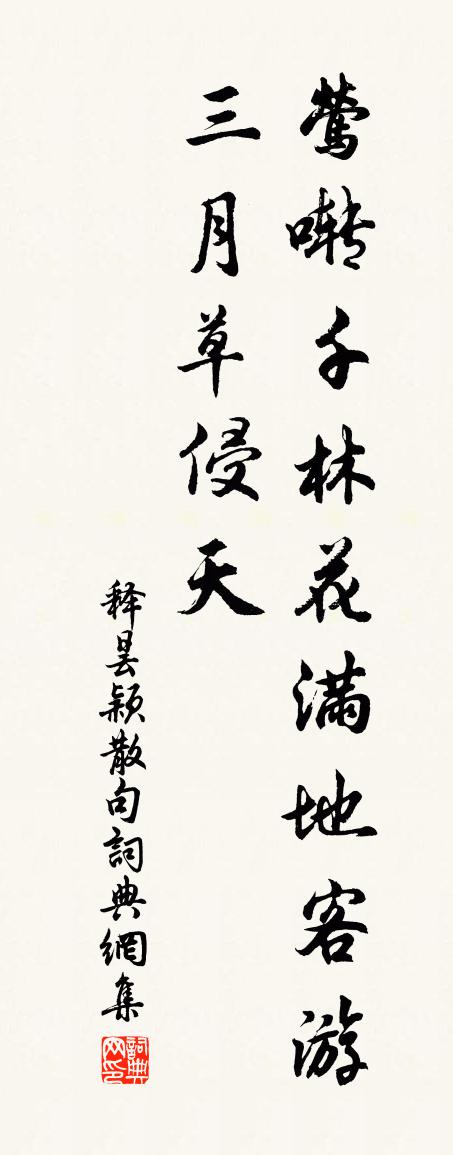 鶯囀千林花滿地客游
三月草侵天
释曇颖散句詞典網集
詞典网印